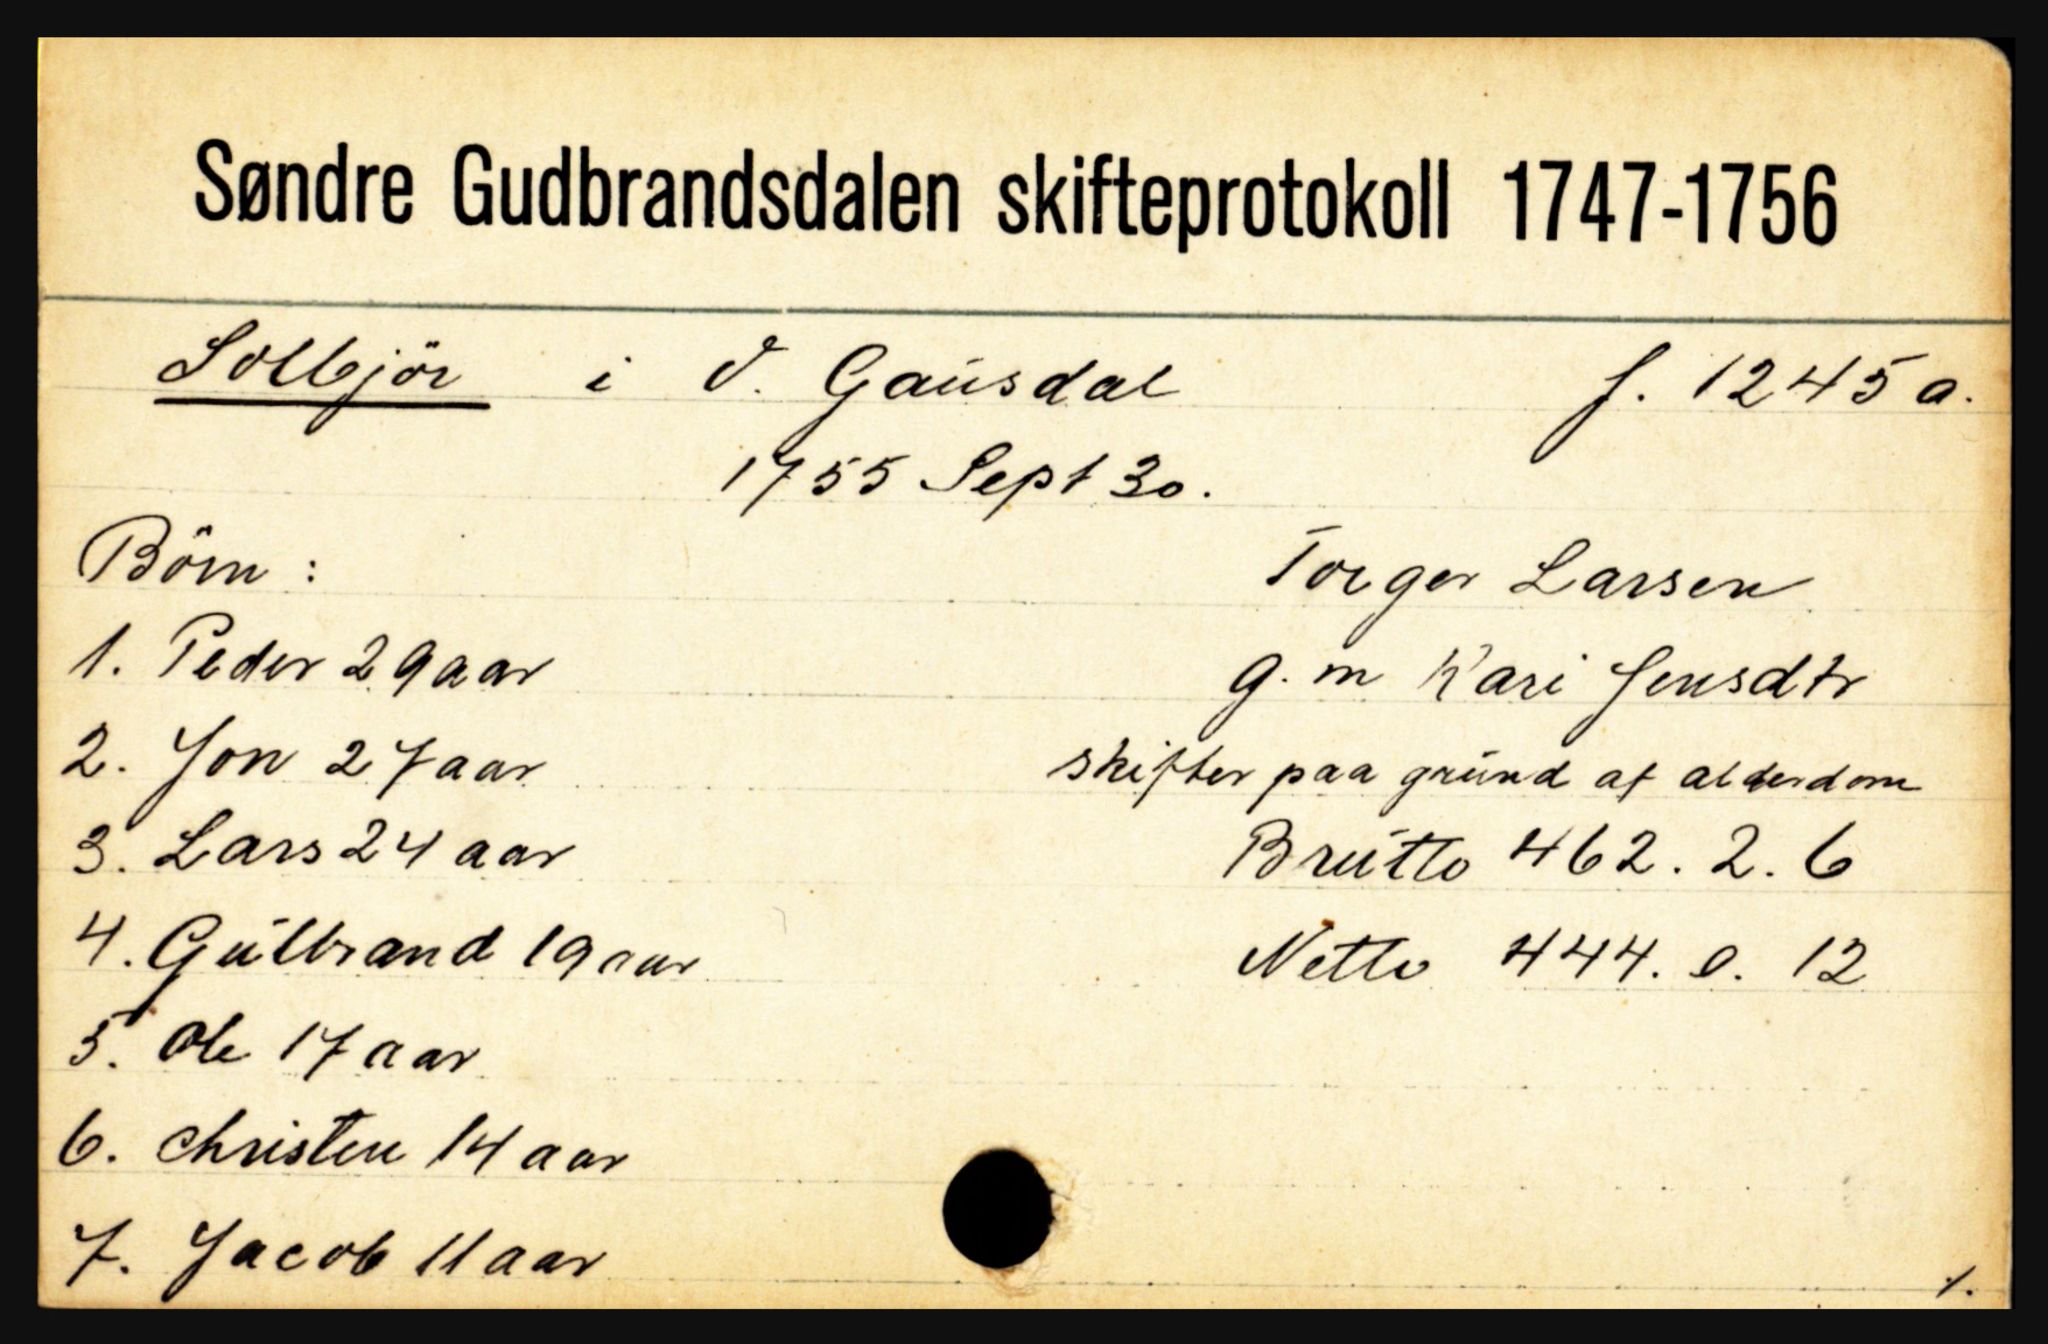 Søndre Gudbrandsdalen skifteprotokoll 1747-1756
Solbjör i V. Gausdal f. 1245 a.
1755 Sept 30.
Börn : Torger Larsen
1. Peder 29 aar g. m Kari Jensdtr
2. Jon 27 aar skifter paa grund af alderdom
3. Lars 24 aar Brutto 462. 2. 6
4. Gulbrand 19 aar Netto 444. 0. 12
5. Ole 17 aar
6. Christen 14 aar
7. Jacob 11 aar 1.